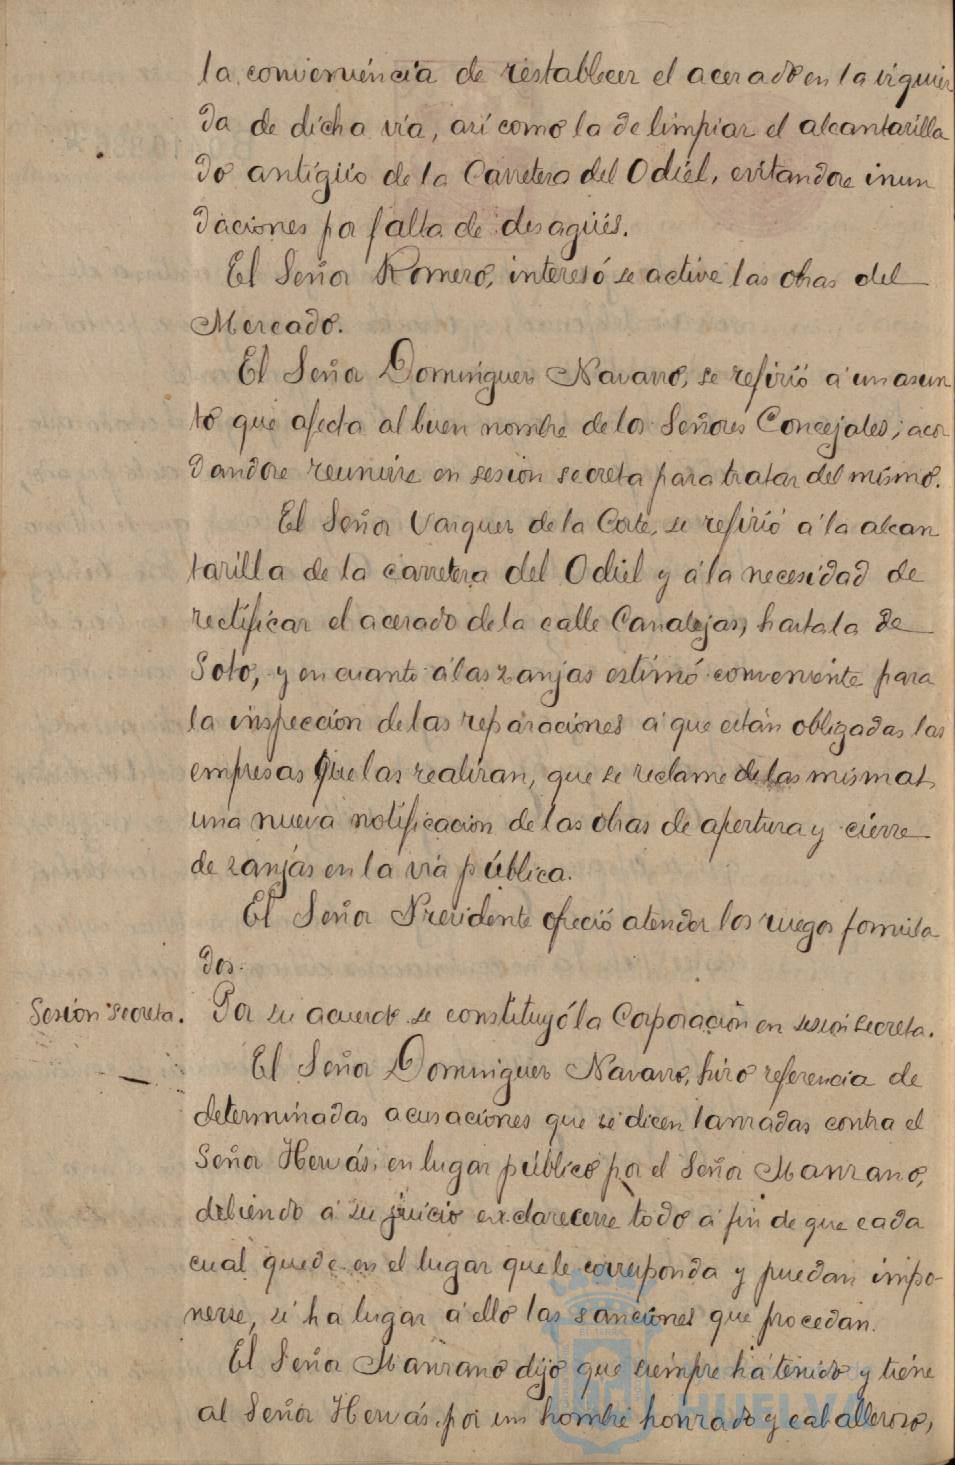 la conveniencia de restablecer el acerado en la izquier
da de dicha vía, así como la de limpiar el alcantarilla
do antigüo de la Carretera del Odiel, evitandose inun
daciones por falta de desagües.
El Señor Romero, interesó se active las obras del
Mercado.
El Señor Dominguez Navarro, se refirió á un asun
to que afecta al buen nombre de los Señores Concejales; acor
dandose reunirse en sesion secreta para tratar del mismo.
El Señor Vazquez de la Corte, se refirió á la alcan
tarilla de la carretera del Odiel y á la necesidad de
rectificar el acerado de la calle Canalejas, hasta la de
Soto, y en cuanto á las zanjas estimó conveniente para
la inspección de las reparaciones á que están obligadas las
empresas que las realizan, que se reclame de las mismas,
una nueva notificación de las obras de apertura y cierre
de zanjas en la vía pública.
El Señor Presidente ofreció atender los ruegos formula
dos.
Sesion secreta. Por su acuerdo se constituyó la Corporación en sesion secreta.
El Señor Dominguez Navarro, hizo referencia de
determinadas acusaciones que se dicen lanzadas contra el
Señor Hervás, en lugar público por el Señor Manzano,
debiendo á su juicio exclarecerse todo á fin de que cada
cual quede en el lugar que le corresponda y puedan impo-
nerse, si ha lugar á ello las sanciones que procedan.
El Señor Manzano dijo que siempre ha tenido y tiene
al Señor Hervás, por un hombre honrado y caballeroso,
HUELVA